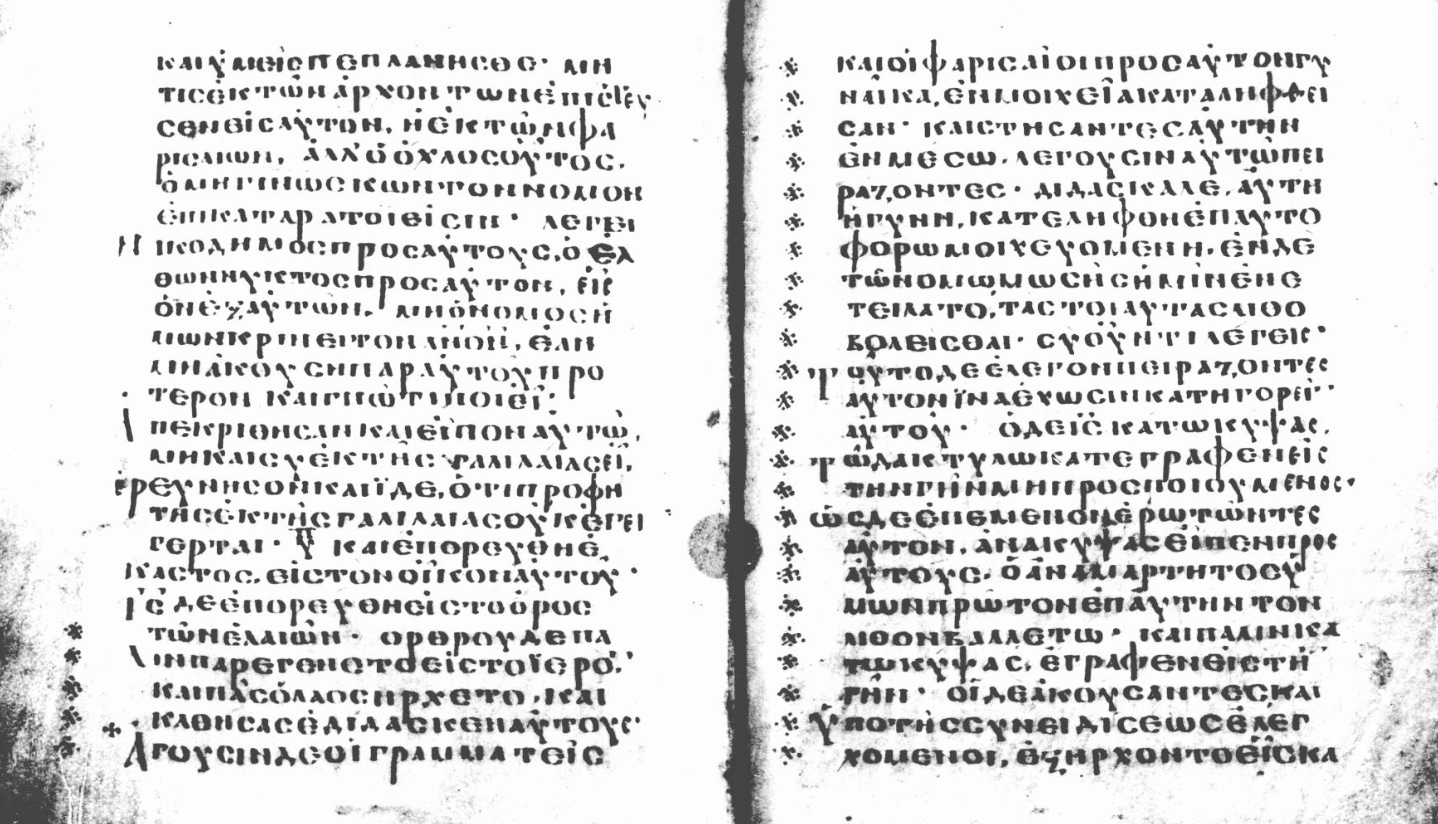 ΚΑΙ ΥΜΕΙΣ ΠΕΠΛΑΝΗСΘΕ· ΜΗ
ΤΙС ΕΚ ΤΩΝ ΑΡΧΟΝΤΩΝ ΕΠΙСΤΕΥ
СΕΝ ΕΙС ΑΥΤΟΝ, Η ΕΚ ΤΩΝ ΦΑ
ΡΙСΑΙΩΝ, ΑΛΛ Ο ΟΧΛΟС ΟΥΤΟС,
Ο ΜΗ ΓΙΝΩСΚΩΝ ΤΟΝ ΝΟΜΟΝ
ΕΠΙΚΑΤΑΡΑΤΟΙ ΕΙСΙΝ· ΛΕΓΕΙ
ΝΙΚΟΔΗΜΟС ΠΡΟС ΑΥΤΟΥС, Ο ΕΛ
ΘΩΝ ΝΥΚΤΟС ΠΡΟС ΑΥΤΟΝ, ΕΙС
ΩΝ ΕΞ ΑΥΤΩΝ. ΜΗ Ο ΝΟΜΟС Η
ΜΩΝ ΚΡΙΝΕΙ ΤΟΝ ΑΝΟΝ, ΕΑΝ
ΜΗ ΑΚΟΥСΗ ΠΑΡ ΑΥΤΟΥ ΠΡΟ
ΤΕΡΟΝ ΚΑΙ ΓΝΩ ΤΙ ΠΟΙΕΙ·
ΑΠΕΚΡΙΘΗСΑΝ ΚΑΙ ΕΙΠΟΝ ΑΥΤΩ,
ΜΗ ΚΑΙ СΥ ΕΚ ΤΗС ΓΑΛΙΛΑΙΑС ΕΙ,
ΕΡΕΥΝΗСΟΝ ΚΑΙ ΪΔΕ, ΟΤΙ ΠΡΟΦΗ
ΤΗС ΕΚ ΤΗС ΓΑΛΙΛΑΙΑС ΟΥΚ ΕΓΕΙ
ΓΕΡΤΑΙ· ΚΑΙ ΕΠΟΡΕΥΘΗ Ε
ΚΑСΤΟС, ΕΙС ΤΟΝ ΟΙΚΟΝ ΑΥΤΟΥ·
ΙС ΔΕ ΕΠΟΡΕΥΘΗ ΕΙС ΤΟ ΟΡΟС
ΤΩΝ ΕΛΑΙΩΝ· ΟΡΘΡΟΥ ΔΕ ΠΑ
ΛΙΝ ΠΑΡΕΓΕΝΕΤΟ ΕΙС ΤΟ ΪΕΡΟ,
ΚΑΙ ΠΑС Ο ΛΑΟС ΗΡΧΕΤΟ, ΚΑΙ
ΚΑΘΗСΑС ΕΔΙΔΑСΚΕΝ ΑΥΤΟΥС·
ΑΓΟΥСΙΝ ΔΕ ΟΙ ΓΡΑΜΜΑΤΕΙС
ΚΑΙ ΟΙ ΦΑΡΙСΑΙΟΙ ΠΡΟС ΑΥΤΟΝ ΓΥ
ΝΑΙΚΑ, ΕΝ ΜΟΙΧΕΙΑ ΚΑΤΑΛΗΦΘΕΙ
СΑΝ· ΚΑΙ СΤΗСΑΝΤΕС ΑΥΤΗΝ
ΕΝ ΜΕСΩ, ΛΕΓΟΥСΙΝ ΑΥΤΩ ΠΕΙ
ΡΑΖΟΝΤΕС· ΔΙΔΑСΚΑΛΕ, ΑΥΤΗ
Η ΓΥΝΗ, ΚΑΤΕΛΗΦΘΗ ΕΠΑΥΤΟ
ΦΟΡΩ ΜΟΙΧΕΥΟΜΕΝΗ, ΕΝ ΔΕ
ΤΩ ΝΟΜΩ ΜΩСΗС ΗΜΙΝ ΕΝΕ
ΤΕΙΛΑΤΟ, ΤΑС ΤΟΙΑΥΤΑС ΛΙΘΟ
ΒΟΛΕΙСΘΑΙ· СΥ ΟΥΝ ΤΙ ΛΕΓΕΙС·
ΤΟΥΤΟ ΔΕ ΕΛΕΓΟΝ ΠΕΙΡΑΖΟΝΤΕС
ΑΥΤΟΝ ΪΝΑ ΕΧΩСΙΝ ΚΑΤΗΓΟΡΕΙ
ΑΥΤΟΥ· Ο ΔΕ ΙС ΚΑΤΩ ΚΥΨΑС,
ΤΩ ΔΑΚΤΥΛΩ ΚΑΤΕΓΡΑΦΕΝ ΕΙС
ΤΗΝ ΓΗΝ ΜΗ ΠΡΟСΠΟΙΟΥΜΕΝΟС·
ΩС ΔΕ ΕΠΕΜΕΝΟΝ ΕΡΩΤΩΝΤΕС
ΑΥΤΟΝ, ΑΝΑΚΥΨΑС ΕΙΠΕΝ ΠΡΟС
ΑΥΤΟΥС, Ο ΑΝΑΜΑΡΤΗΤΟС Υ
ΜΩΝ ΠΡΩΤΟΝ ΕΠ ΑΥΤΗΝ ΤΟΝ
ΛΙΘΟΝ ΒΑΛΛΕΤΩ· ΚΑΙ ΠΑΛΙΝ ΚΑ
ΤΩ ΚΥΨΑС, ΕΓΡΑΦΕΝ ΕΙС ΤΗ
ΓΗΝ· ΟΙ ΔΕ ΑΚΟΥСΑΝΤΕС ΚΑΙ
ΥΠΟ ΤΗС СΥΝΕΙΔΙСΕΩС ΕΛΕΓ
ΧΟΜΕΝΟΙ, ΕΞΗΡΧΟΝΤΟ ΕΙС ΚΑ